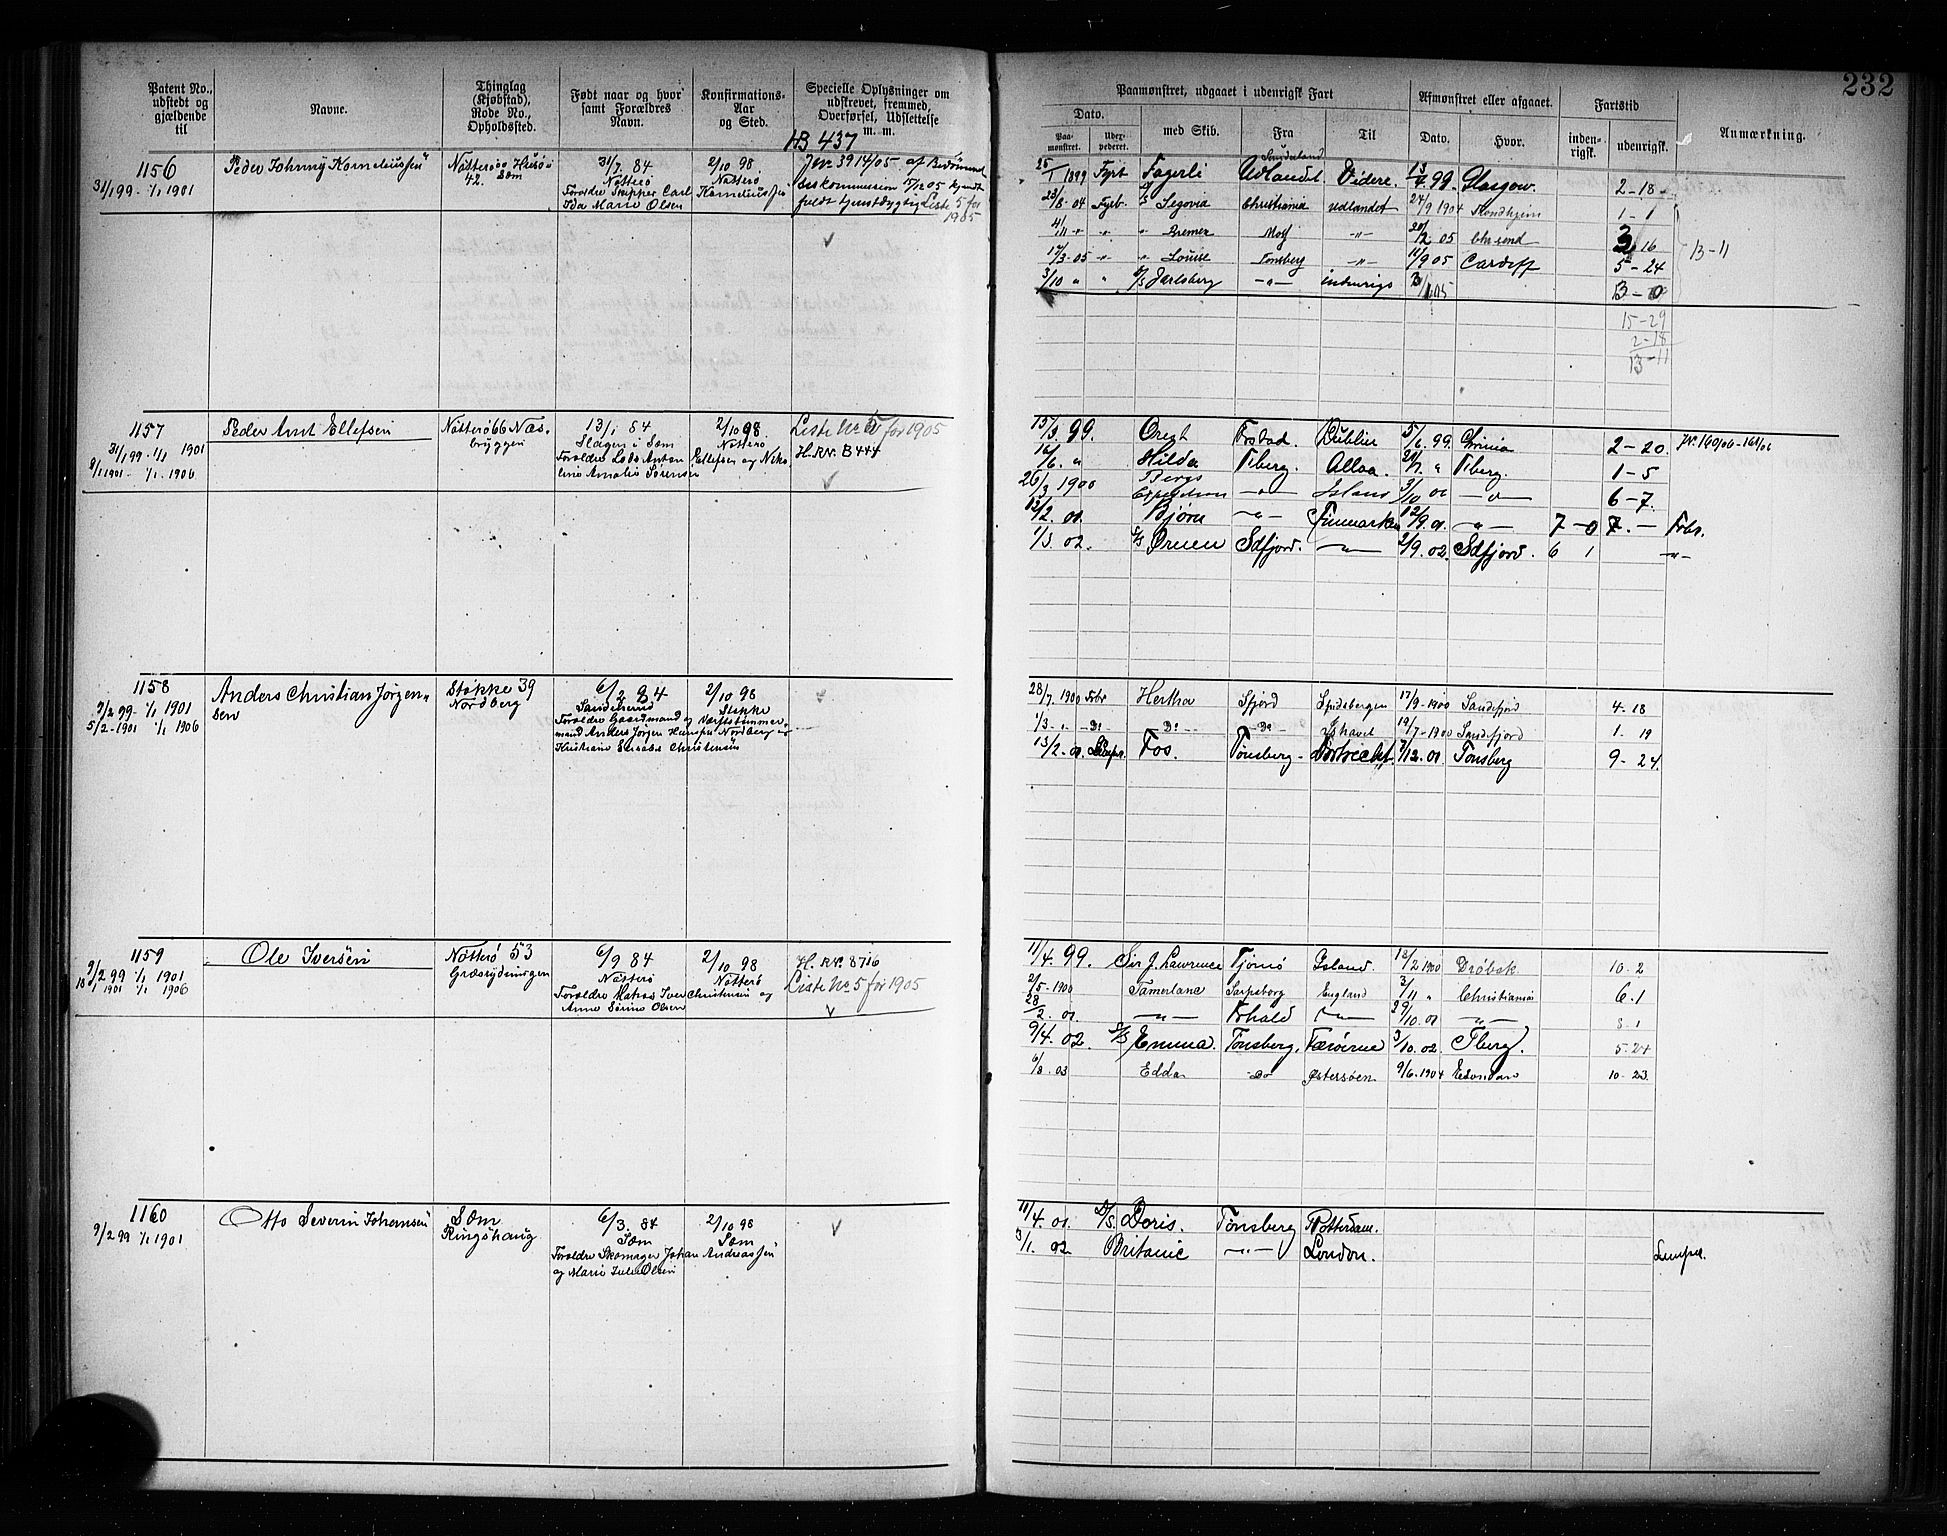 232
Patent No., udstedt og gjældende til
Navne.
Thinglag (Kjøbstad), Rode No., Opholdssted.
Født naar og hvor samt Forældres Navn.
Konfirmations-Aar og Sted.
Specielle Oplysninger om udskrevet, fremmed, Overførsel, Udslettelse m. m.
Paamønstret, udgaaet i udenrigsk Fart
Dato.
Paamønstret.
Udexpederet.
med Skib.
Fra
Til
Afmønstret eller afgaaet.
Dato.
Hvor.
Fartstid
indenrigsk.
udenrigsk.
Anmærkning.
HB 437
1156
31/1 99 - 1/1 1901
Peder Johnny Korneliussen
Nøtterø Husø
42. Sem
31/7 84
Nøtterø
Foreldre Skipper Carl Korneliussen
Ida Marie Olsen
2/10 98
Nøtterø
Jnr 3914/05 af Bedømmelseskommission 15/12 05 kjendt
fuldt tjenstdygtig Liste 5 for
1905
25/1 1899 Fyrb Fagerli Sunderland Udlandet Videre. 13/4 99. Glasgow. 2-18
23/8-04 Fyrb. D/S Segovia Christiania Udlandet 24/9 1904 Trondhjem 1-1
4/11 " " " Bremer Moss -"- 20/2 05 Chr.sand 3 16
17/3-05 -"- " Louise Tønsberg -"- 11/9 05 Cardiff 5-24
3/10 " " D/S Jarlsberg -"- indenrigs 3/1 05 3-0
13-11
15-29
2-18
13-11
1157
31/1 99 - 1/1 1901
1/1 1901 - 1/1 1906
Peder Arnt Ellefsen
Nøtterø 66 Næsbryggen
13/1 84
Slagen i Sem
Foreldre Lods Anton Ellefsen og Nikoline Amalie Sørensen
2/10 98
Nøtterø
Liste No 5 for 1905
H.RNr. B 444
15/3 99. Orest Frstad. Dublin 5/6 99. Grimsa 2-20. Jnr 160/06-161/06
16/6 " Hilda Tberg. Alloa. 21/7 " Tberg. 1-5
26/3 1900 Bergs Expedition -"- Island 3/10 00 -"- 6-7.
12/2. 01. Bjørn -"- Finmarken 12/9. 01. -"- 7-0 7.- Fobr.
1/3. 02. S/S Ørnen Sdfjord. -"- 2/9. 02. Sdfjord. 6 1 -"-
1158
9/2 99 - 1/1 1901
5/2-1901 1/1 1906
Anders Christian Jørgensen
Stokke 39
Nordberg
6/2 84
Sandeherred
Foreldre Gaardmand og Værftstømmermand Anders Jørgen Hansen Nordberg og
Kristiane Elisabet Christensen
2/10 98
Stokke
28/7. 1900 Fobr Hertha Sfjord Spidsbergen 17/9-1900 Sandefjord 4-18
1/3-"- Do Do -Do- Ishavet 19/7-1900 Sandefjord 1. 19
13/2. 01. Fos. Tønsberg - Dortrecht 7/12. 01. Tønsberg 9-24.
1159
9/2 99 1/1 1901
18/1 1901 1/1 1906
Ole Iversen
Nøtterø 53
Græsrydningen
6/9 84
Nøtterø
Foreldre Matros Iver Christensen og
Anne Sørine Olsen
2/10 98
Nøtterø
H. RNr. 8716
Liste No 5 for 1905
11/4. 99. Sir J. Lawrence Tjømø Island. 12/2 1900 Drøbak 10-2
2/5-1900 Tamerlane Sarpsborg England 3/11 " Christiania 6.1
28/2. 01. -"- Frhald -"- 29/10. 01 -"- 8-1
9/4. 02. S/S Emma. Tønsberg. Færøerne 3/10. 02. Tberg. 5-24
6/8. 03 Edda -Do- Østersøen 9/6. 1904 10-23
1160
9/2 99 1/1 1901
Otto Severin Johansen
Sem
Ringshaug
6/3. 84
Sem
Foreldre Skomager Johan Andreassen
og Marie Julie Olsen
2/10 98
Sem
10/4. 01. D/S Doris. Tønsberg Rotterdam.
3/1. 02 Britanic -"- London.